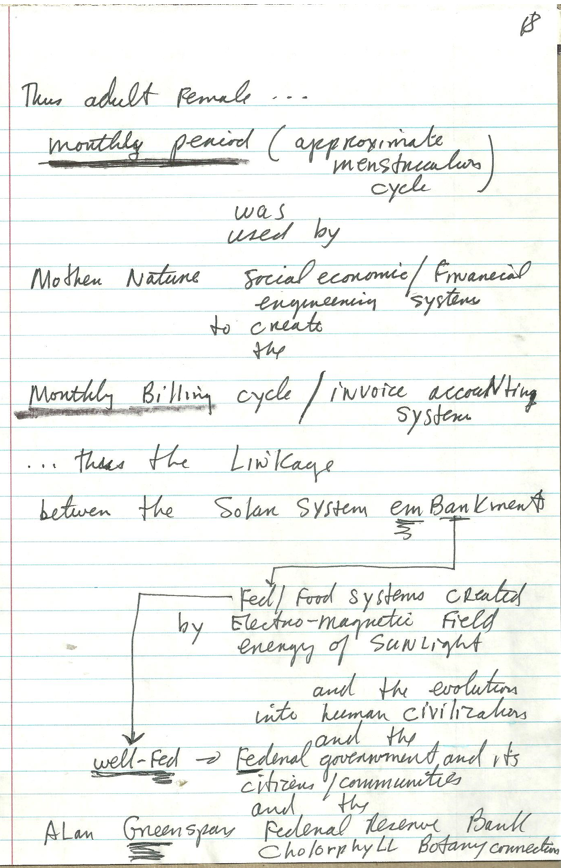 18
Thus adult Female ...
monthly period ( approximate
menstruculus
cycle )
was
used by
Mother Nature social economic / Financial
engineering systems
to create
the
Monthly Billing cycle / invoice accounting
system
... thus the Linkage
betwen the Solar System em Bankments
Fed / Food systems created
by Electro-magnetic Field
energy of SunLight
and the evolution
into human civilizations
and the
well-Fed → Federal government, and its
citizens / communities
and the
ALan Greenspan Federal Reserve Bank
CholorphyLL Botany connection